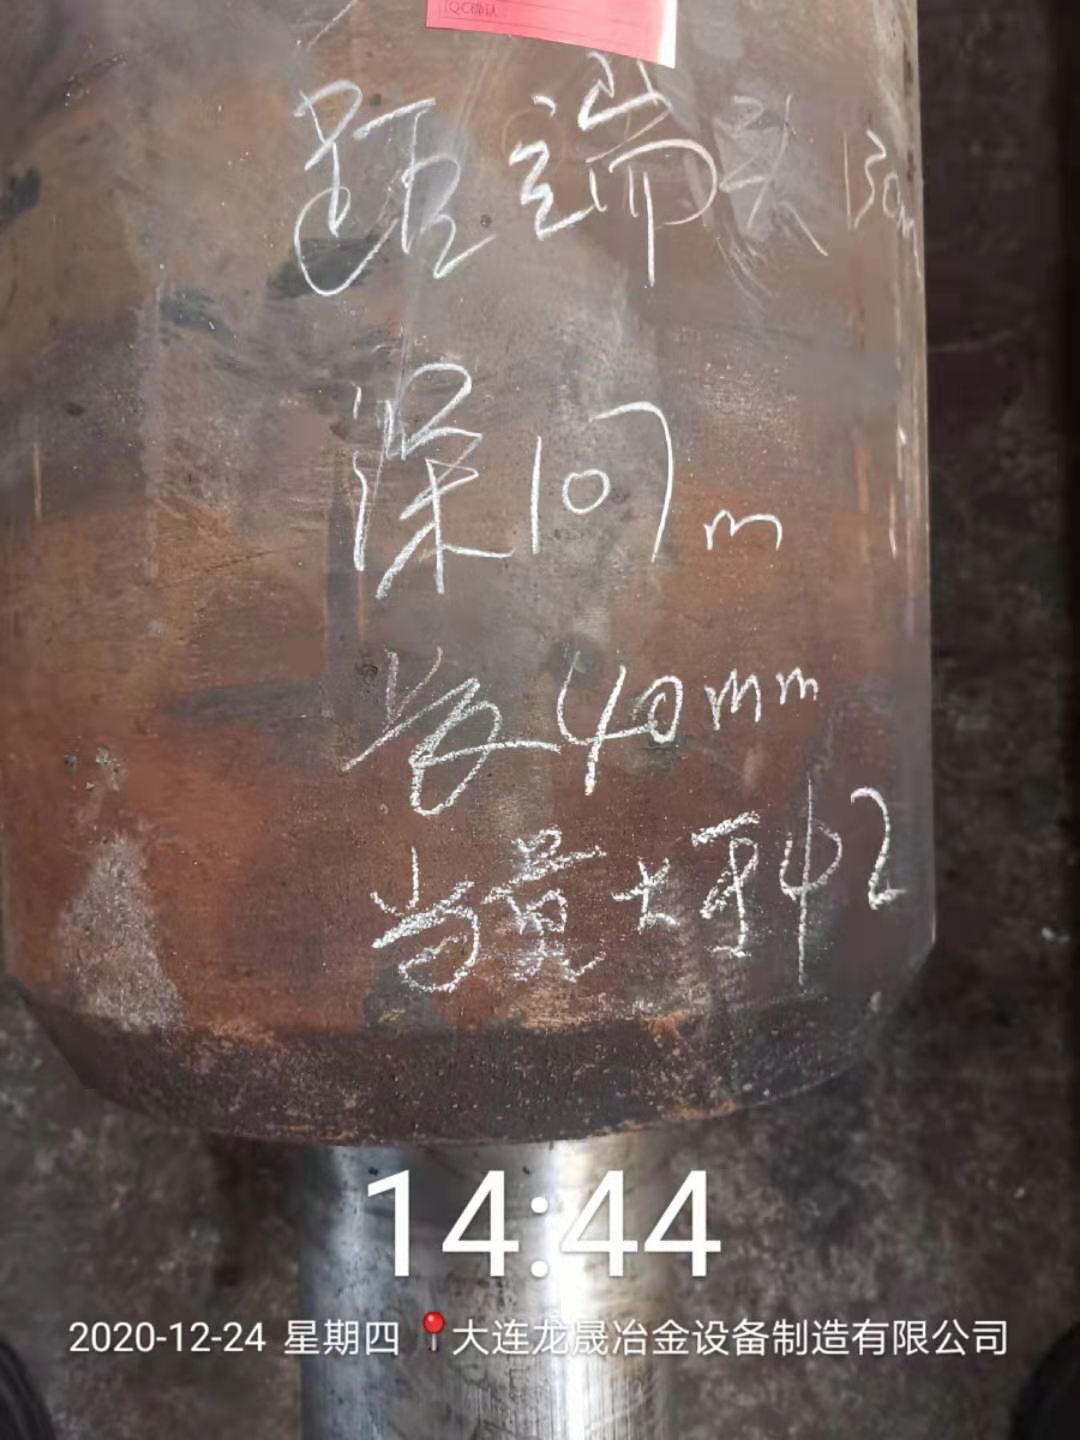 QC确认
距端头130m
深107m
长40mm
当量大于Φ2
14:44
2020-12-24 星期四 大连龙晟冶金设备制造有限公司